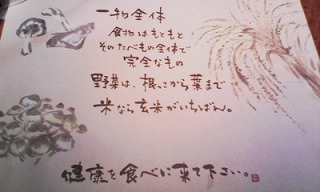 一物全体
食物はもともと
そのたべもの全体で
完全なもの
野菜は、根っこから葉まで
米なら玄米がいちばん。
健康を食べに来て下さい。